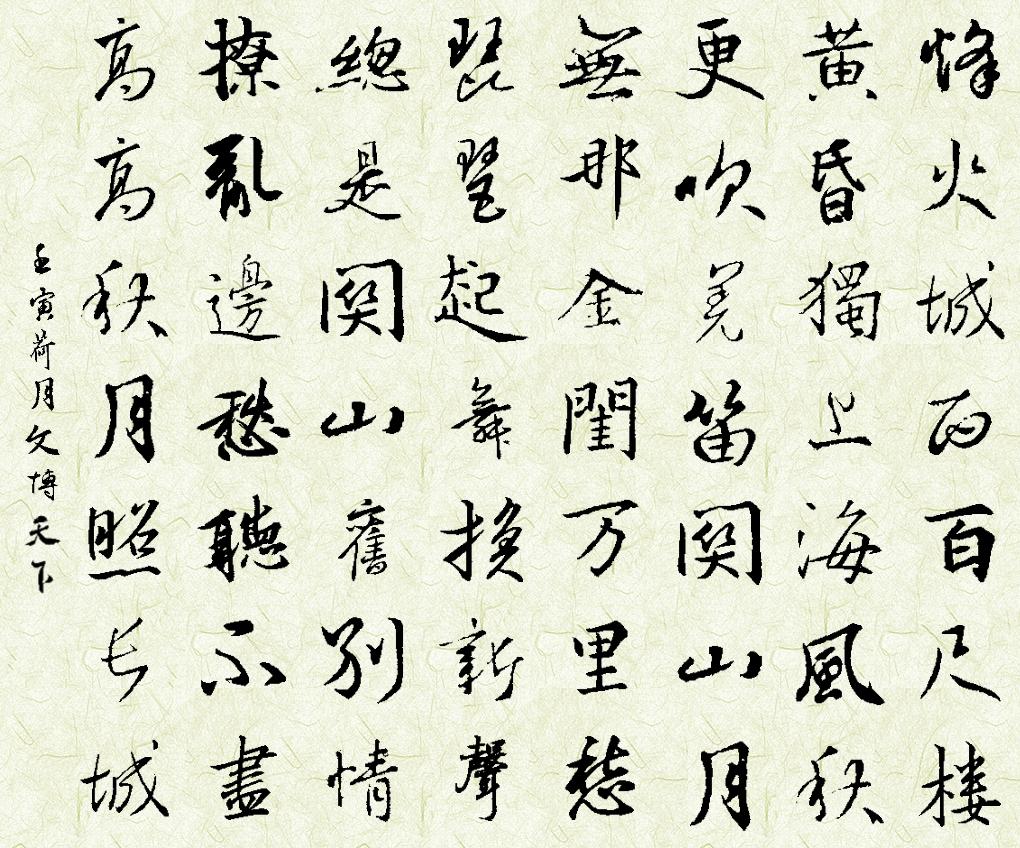 烽火城西百尺楼
黄昏獨上海風秋
更吹羌笛関山月
無那金閨万里愁
琵琶起舞换新聲
總是関山舊别情
撩亂邊愁聽不盡
高高秋月照长城
壬寅荷月文博天下